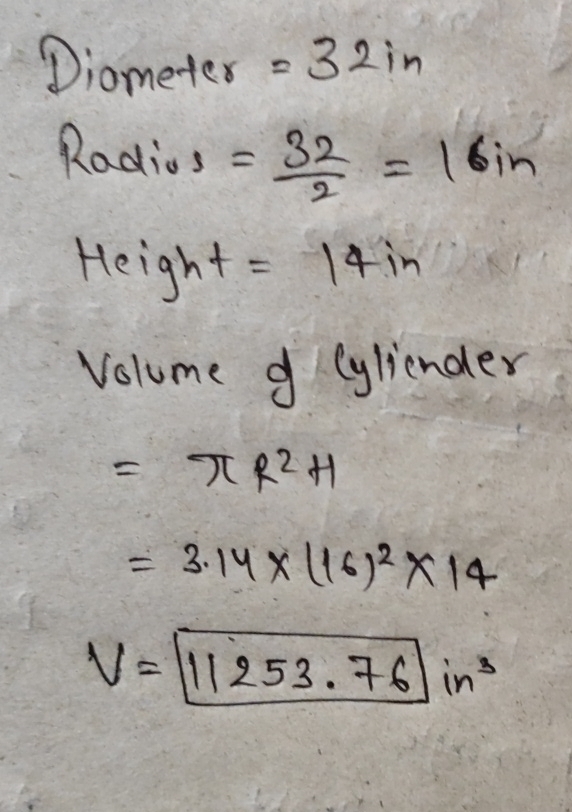 Diometer = 32in
Radius = 32/2 = 16in
Height = 14in
Volume of Cyliender
= πR²H
= 3.14 x (16)² x 14
V = 11253.76 in³